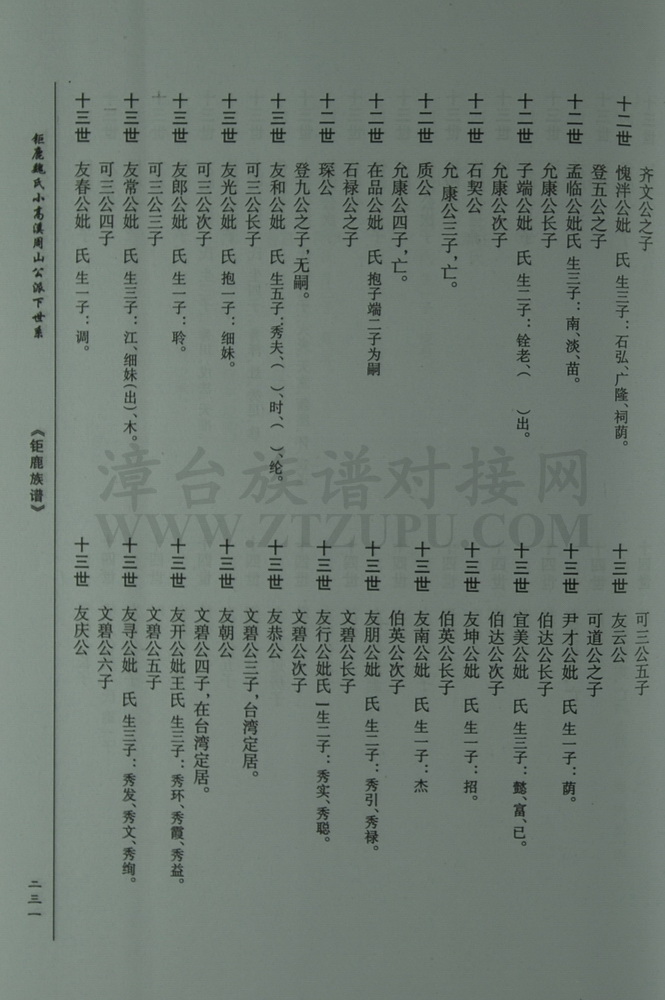 齐文公之子
十二世 愧泮公妣 氏 生三子：石弘、广隆、祠荫。
登五公之子
十二世 孟临公妣氏 生三子：南、淡、苗。
允康公长子
十二世 子端公妣 氏 生二子：铨老、( )出。
允康公次子
十二世 石契公
允 康公三子，亡。
十二世 质公
允康公四子，亡。
十二世 在品公妣 氏 抱子端二子为嗣
石禄公之子
十二世 琛公
登九公之子，无嗣。
十三世 友和公妣 氏 生五子：秀夫、( )、时、( )、纶。
可三公长子
十三世 友光公妣 氏 抱一子：细妹。
可三公次子
十三世 友郎公妣 氏 生一子：聆。
可三公三子
十三世 友常公妣 氏 生三子：江、细妹(出)、木。
可三公四子
十三世 友春公妣 氏 生一子：调。
可三公五子
十三世 友云公
可道公之子
十三世 尹才公妣 氏 生一子：荫。
伯达公长子
十三世 宜美公妣 氏 生三子：懿、富、已。
伯达公次子
十三世 友坤公妣 氏 生一子：招。
伯英公长子
十三世 友南公妣 氏 生一子：杰
伯英公次子
十三世 友朋公妣 氏 生二子：秀引、秀禄。
文碧公长子
十三世 友行公妣氏 一生二子：秀实、秀聪。
文碧公次子
十三世 友恭公
文碧公三子，台湾定居。
十三世 友朝公
文碧公四子，在台湾定居。
十三世 友开公妣王氏 生三子：秀环、秀霞、秀益。
文碧公五子
十三世 友寻公妣 氏 生三子：秀发、秀文、秀绚。
文碧公六子
十三世 友庆公
钜鹿魏氏小高溪周山公派下世系
《钜鹿族谱》
二三一
漳台族谱对接网
WWW.ZTZUPU.COM